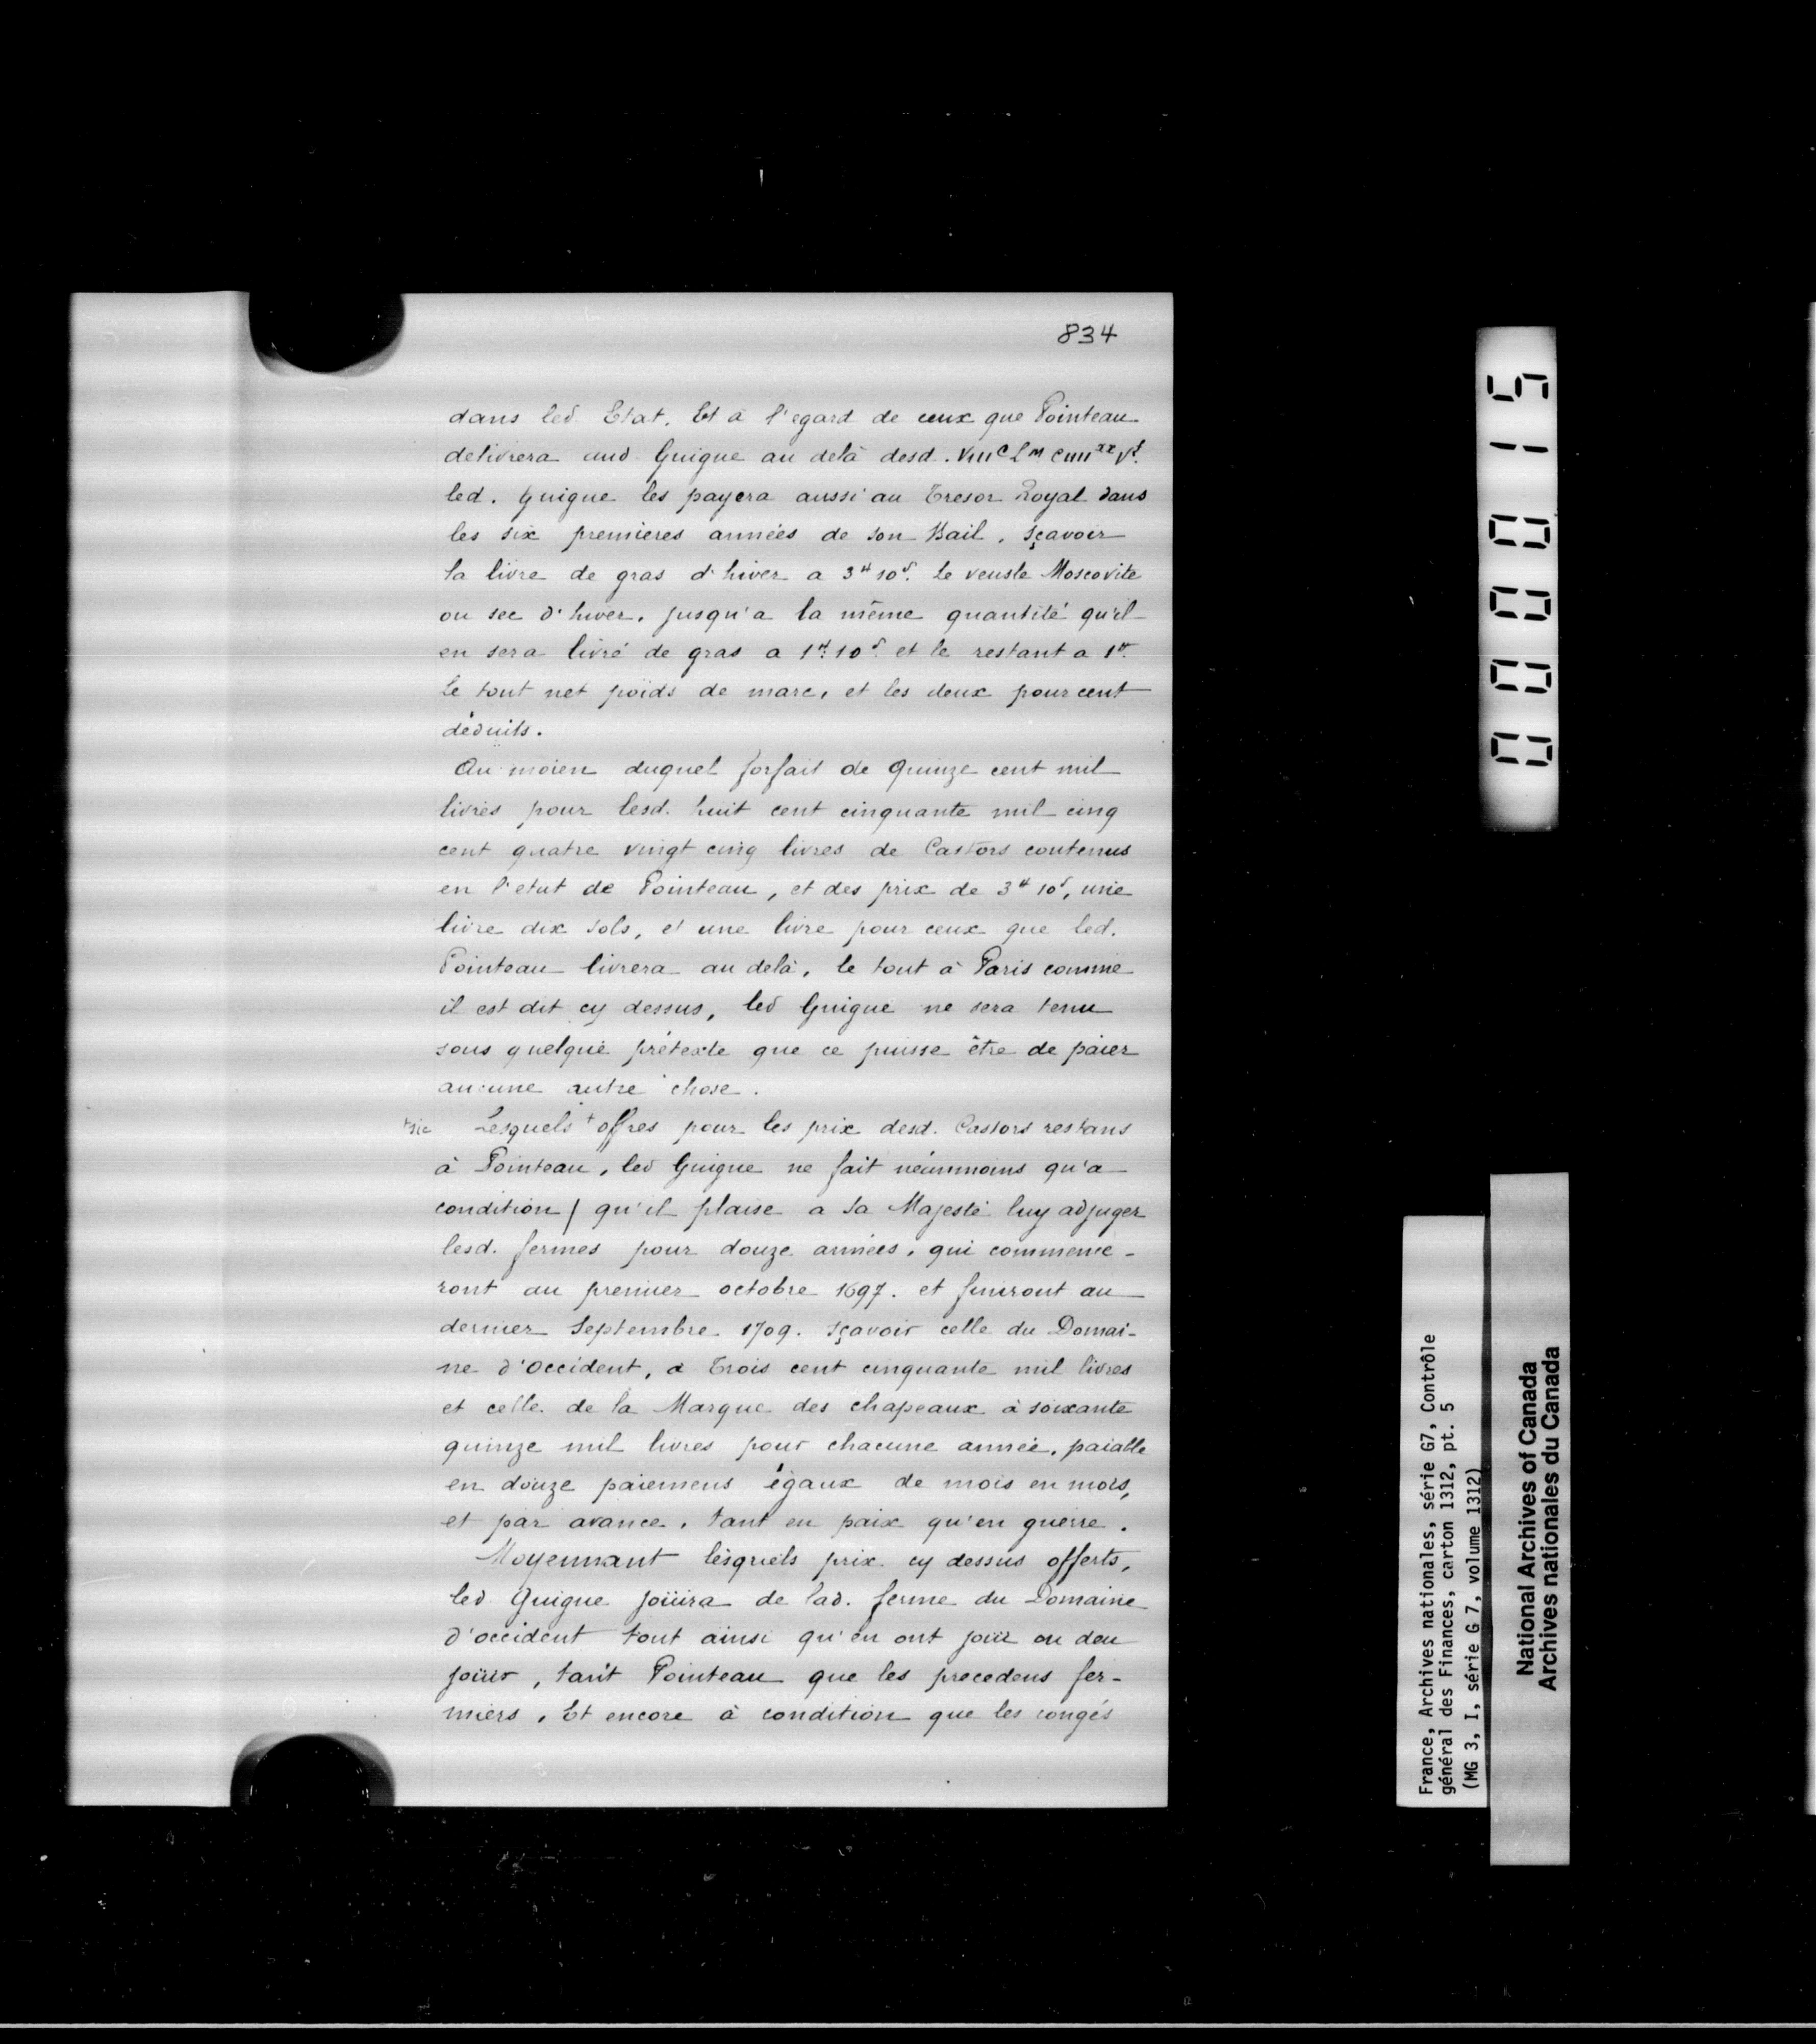 834
dans led Etat. Et à l'egard de ceux que Pointeau
delivrera aud Guigue au delà desd. VIIIᶜLᴹ CIIIIˣˣVᵗ.
led. Guigue les payera aussi au Tresor Royal dans
les six premieres années de son Bail. sçavoir
la livre de gras d'hiver a 3ᵗᵗ 10ˢ. le veusle Moscovite
ou sec d'hiver. jusqu'a la même quantité qu'il
en sera livré de gras a 1ᵗᵗ: 10ˢ. et le restant a 1ᵗᵗ.
Le tout net poids de marc, et les deux pour cent
déduits.
Au moien duquel forfait de quinze cent mil
livres pour lesd. huit cent cinquante mil cinq
cent quatre vingt cinq livres de Castors contenus
en l'etat de Pointeau, et des prix de 3ᵗᵗ 10ˢ, une
livre dix sols, et une livre pour ceux que led.
Pointeau livrera au delà, le tout à Paris comme
il est dit cy dessus, led Guigue ne sera tenu
sous quelque prétexte que ce puisse être de païer
aucune autre chose.
+sic Lesquels + offres pour les prix desd. Castors restans
à Pointeau, led Guigue ne fait néanmoins qu'a
condition / qu'il plaise a Sa Majesté luy adjuger
lesd. fermes pour douze années, qui commence-
ront au premier octobre 1697. et finiront au
dernier Septembre 1709. sçavoir celle du Domai-
ne d'Occident, a Trois cent cinquante mil livres
et celle de la Marque des chapeaux à soixante
quinze mil livres pour chacune année, paiable
en douze paiemens égaux de mois en mois,
et par avance, tant en paix qu'en guerre.
Moyennant lesquels prix cy dessus offerts,
led Guigue joüira de lad. ferme du Domaine
d'occident tout ainsi qu'en ont joüi ou deu
joüir, tant Pointeau que les precedens fer-
miers, Et encore à condition que les congés
000015
France, Archives nationales, série G7, Contrôle
général des Finances, carton 1312, pt. 5
(MG 3, I, série G 7, volume 1312)
National Archives of Canada
Archives nationales du Canada